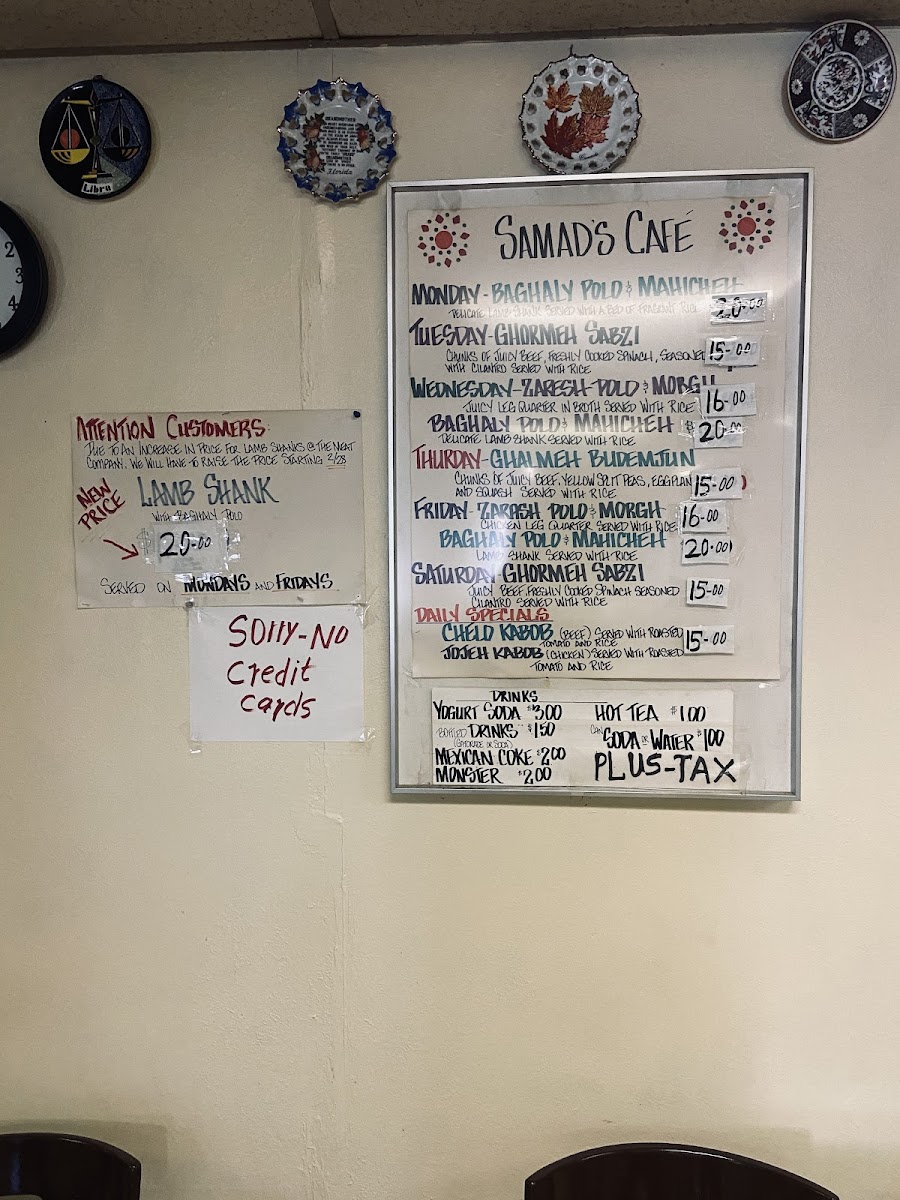 Libra
GRANDMOTHER
Florida
2
3
4
SAMAD'S CAFÉ
MONDAY-BAGHALY POLO & MAHICHEH
DELICATE LAMB SHANK SERVED WITH A BED OF FRAGRANT RICE
20.00
TUESDAY-GHORMEH SABZI
CHUNKS OF JUICY BEEF, FRESHLY COOKED SPINACH, SEASONED
WITH CILANTRO SERVED WITH RICE
15-00
WEDNESDAY-ZARESH-POLO & MORGH
JUICY LEG QUARTER IN BROTH SERVED WITH RICE
16-00
BAGHALY POLO & MAHICHEH $20.00
DELICATE LAMB SHANK SERVED WITH RICE
THURDAY-GHALMEH BUDEMJUN
CHUNKS OF JUICY BEEF, YELLOW SPLIT PEAS, EGGPLAN
AND SQUASH SERVED WITH RICE
15-00
FRIDAY-ZARASH POLO & MORGH 16-00
CHICKEN LEG QUARTER SERVED WITH RICE
BAGHALY POLO & MAHICHEH 20.00
LAMB SHANK SERVED WITH RICE
SATURDAY-GHORMEH SABZI
JUICY BEEF, FRESHLY COOKED SPINACH SEASONED
CILANTRO SERVED WITH RICE
15-00
DAILY SPECIALS
CHELO KABOB (BEEF) SERVED WITH ROASTED
TOMATO AND RICE
15-00
JOJEH KABOB (CHICKEN) SERVED WITH ROASTED
TOMATO AND RICE
DRINKS
YOGURT SODA $3.00
BOTTLED DRINKS $1.50
(GATORADE OR SODA)
MEXICAN COKE $2.00
MONSTER $2.00
HOT TEA $1.00
CAN SODA OR WATER $1.00
PLUS-TAX
ATTENTION CUSTOMERS:
DUE TO AN INCREASE IN PRICE FOR LAMB SHANKS @ THE MEAT
COMPANY. WE WILL HAVE TO RAISE THE PRICE STARTING 2/28
NEW
PRICE
LAMB SHANK
WITH BAGHALY POLO
20-00
SERVED ON MONDAYS AND FRIDAYS
SORRY-NO
Credit
cards